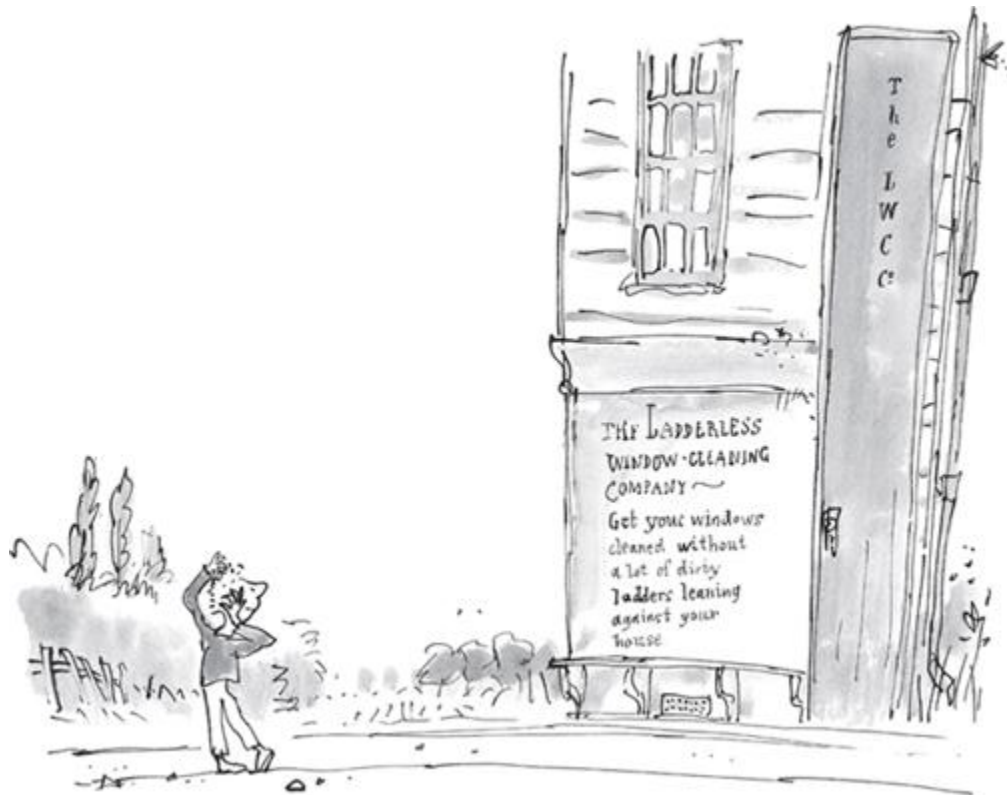 THE LADDERLESS
WINDOW-CLEANING
COMPANY~
Get your windows
cleaned without
a lot of dirty
ladders leaning
against your
house
The LWC Co